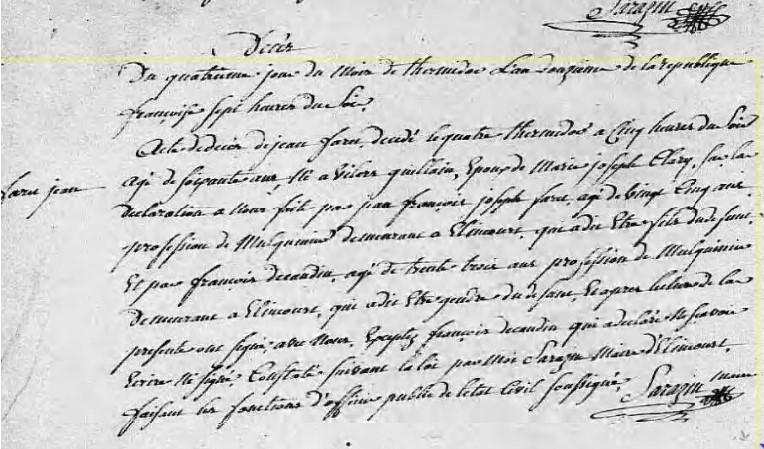 Sarazin
Décès
Du quatrieme jour du mois de thermidor L'an douzieme de la republique
françoise sept heures du soir.
Acte de décès de jean faru decedé le quatre thermidor a Cinq heures du soir
agé de soixante ans Né a Vilers guillain, Epoux de Marie joseph Clary, sur la
faru jean
declaration a nous fait par jean françois joseph faru, agé de vingt Cinq ans
profession de Mulquinier demeurant a Elincourt, qui a dit Etre fils du defunt
Et par françois decaudin, agé de trente trois ans profession de Mulquinier
demeurant a Elincourt, qui a dit Etre gendre du defunt, Et apres lecture de la
presente ont signé avec Nous. Excepté françois decaudin qui a declaré Ne scavoir
Ecrire Ni signé. Constaté suivant la loi par Moi Sarazin Maire d'Elincourt,
faisant les fonctions d'officier public de letat Civil soussigné. Sarazin maire